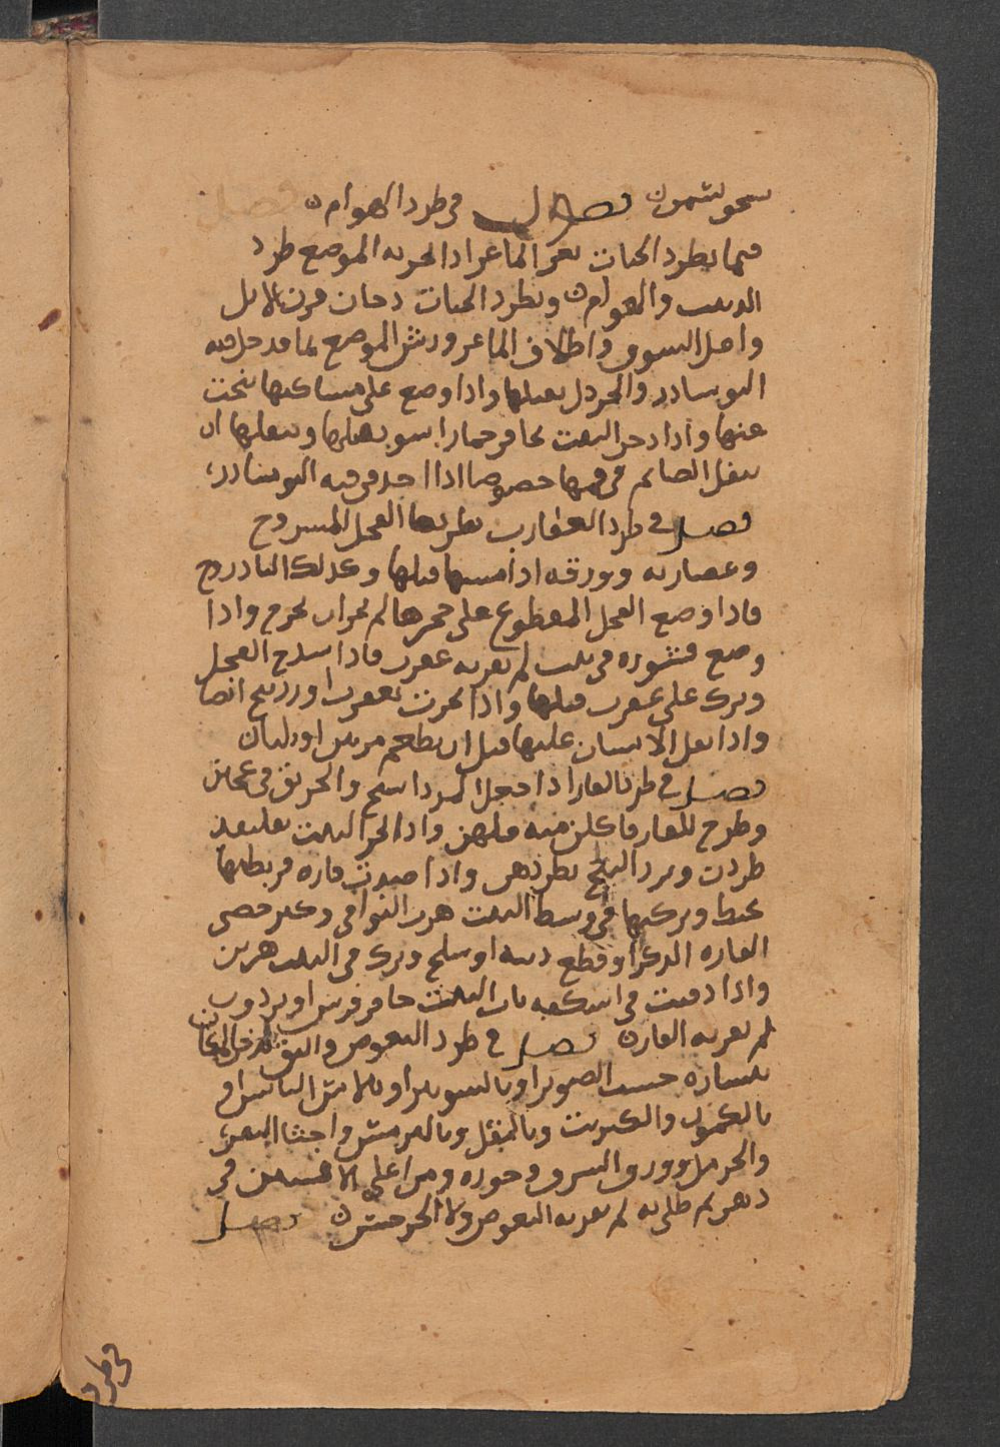 فصل في طرد الهوام
مما يطرد الحيات بعر الماعز اذا بخر به الموضع طرد
الدبيب والهوام ويطرد الحيات دخان قرن الايل
واصل السوس واظلاف الماعز ورش الموضع بما قد حل فيه
النوشادر والخردل يقتلها واذا وضع على مساكنها تنحت
عنها واذا دخن البيت بحافر حمار او يقتلها ان
يتفل الصائم في فيها خصوصا اذا اخذ في فيه النوشادر
فصل في طرد العقارب يطردها الفجل المشدوخ
وعصارته وورقه اذا مسها قتلها وكذلك الباذروج
فاذا وضع الفجل المقطوع على جحرها لم تجسر ان تخرج واذا
وضع قشوره في بيت لم تقربه عقرب فاذا شدخ الفجل
وترك على عقرب قتلها واذا بخرت بعقرب او زرنيخ ايضا
واذا تفل الانسان عليها قبل ان يطعم مرتين او ثلاث
فصل في طرد الفار اذا جعل المرداسنج والخربق في عجين
وطرح للفار فاكلن منه قتلهن واذا بخر البيت
طردت وبزر البنج يطردهن واذا صيدت فاره فربطتها
بخيط وتركتها في وسط البيت هرب البواقي وكذلك خصي
الفاره الذكر او قطع ذنبه او سلخ وترك في البيت هربن
واذا دفنت في اسكفه باب البيت حافر فرس او برذون
لم يقربه الفار فصل في طرد البعوض والبق تدخن المكان
بنشاره خشب الصنوبر او بالشونيز او بالاس اليابس او
بالكمون والكبريت وبالمقل واخثا البقر
والحرمل وورق السرو وجوزه ومن اغلى الافسنتين في
دهن ثم طلي به لم يقربه البعوض ولا الجرجس فصل
في طرد